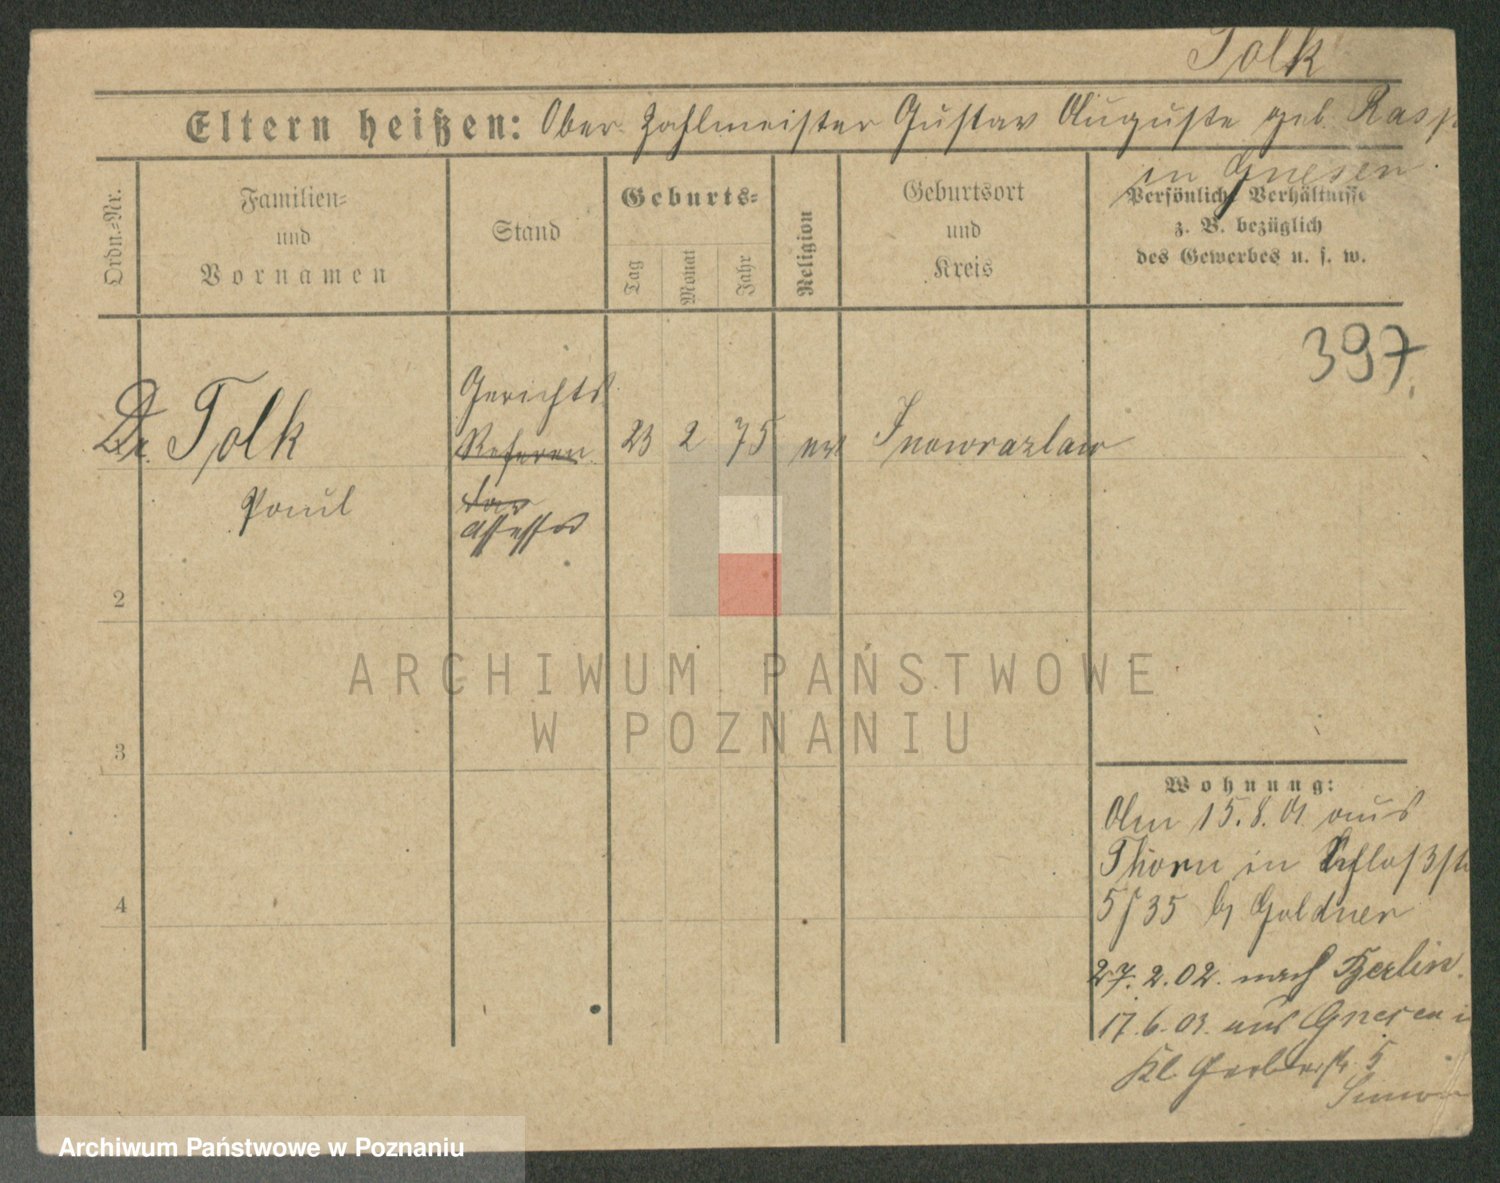 Tolk
Eltern heißen: Ober Zahlmeister Gustav Auguste geb. Rasp
in Gnesen.
Ordn.-Nr.
Familien-
und
Vornamen
Stand
Geburts-
Tag
Monat
Jahr
Religion
Geburtsort
und
Kreis
Persönliche Verhältnisse
z. B. bezüglich
des Gewerbes u. s. w.
397.
Dr. Tolk
Paul
Gerichts
Referen
dar
Assessor
23 2 75 ev Inowrazlaw
2
3
4
ARCHIWUM PAŃSTWOWE
W POZNANIU
Wohnung:
Am 15.8.01 aus
Thorn in Schloßstr
5/35 b/ Goldner
27.2.02. nach Berlin.
17.6.03. aus Gnesen i
Kl. Gerberstr. 5
Simon
Archiwum Państwowe w Poznaniu